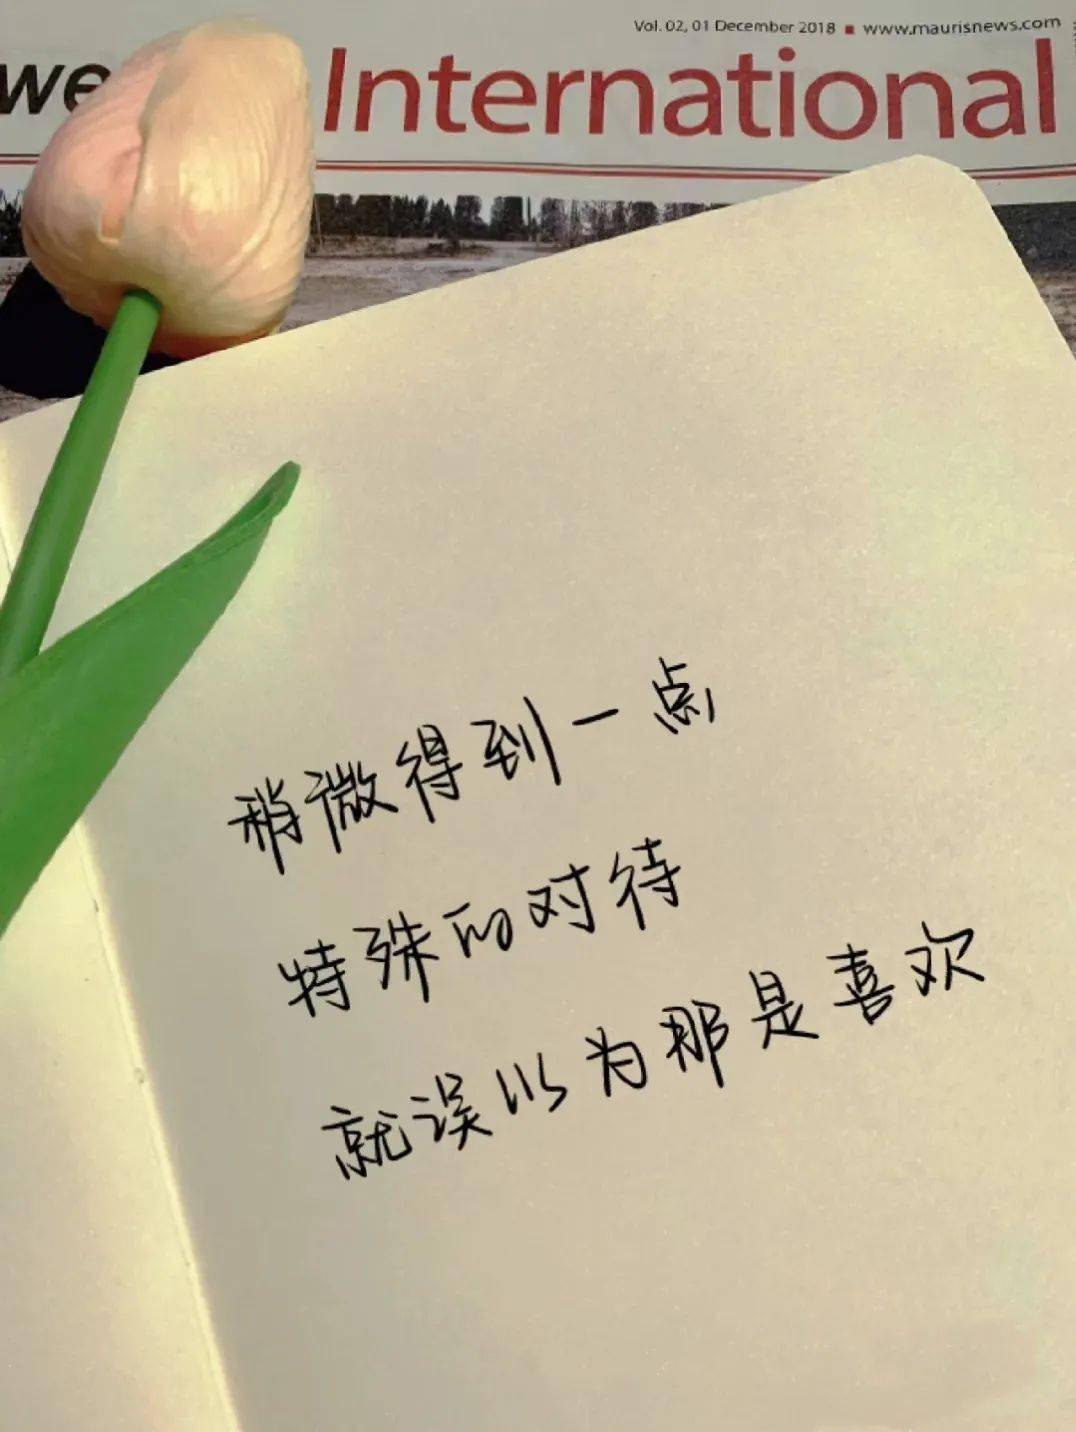 Vol. 02, 01 December 2018 ■ www.maurisnews.com
we
International
稍微得到一点
特殊的对待
就误以为那是喜欢